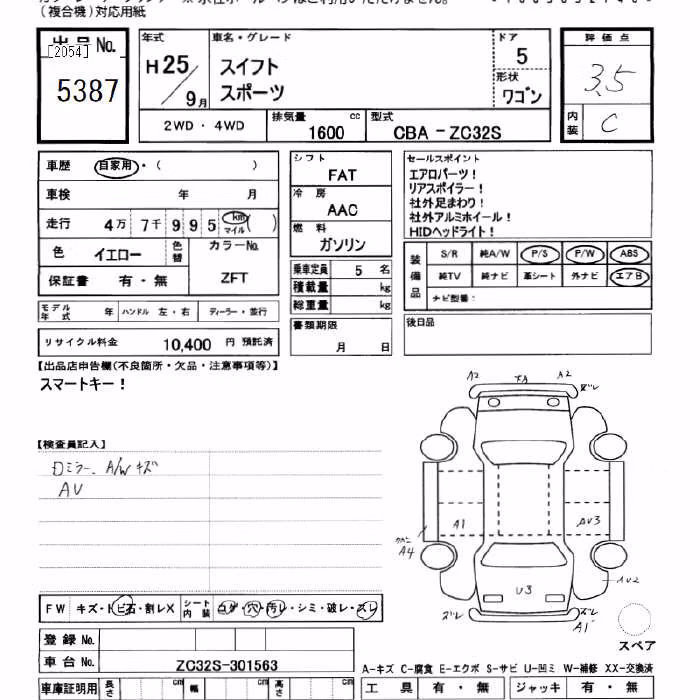 (複合機)対応用紙
出品No.
[2054]
5387
年式 車名・グレード ドア 評価点
H25/9月 スイフト 5 3.5
スポーツ 形状 ワゴン
内装 C
2WD・4WD 排気量 1600 cc 型式 CBA-ZC32S
車歴 自家用・( )
車検 年 月
走行 4万 7千 9 9 5 km マイル ( )
色 イエロー 色替 カラーNo. ZFT
保証書 有・無
モデル年式 年 ハンドル 左・右 ディーラー・並行
リサイクル料金 10,400 円 預託済
シフト FAT
冷房 AAC
燃料 ガソリン
乗車定員 5 名
積載量 kg
総重量 kg
書類期限
月 日
セールスポイント
エアロパーツ!
リアスポイラー!
社外足まわり!
社外アルミホイール!
HIDヘッドライト!
装備品 S/R 純A/W P/S P/W ABS
純TV 純ナビ 革シート 外ナビ エアB
ナビ型番:
後日品
【出品店申告欄(不良箇所・欠品・注意事項等)】
スマートキー!
【検査員記入】
ミラー、A/Wキズ
AV
A2 A2
A1 AU3
A4
U3 AU2
ズレ ズレ
A1
スペア
FW キズ・トビ石・割レX シート内装 コゲ・穴・汚レ・シミ・破レ・スレ
登録No.
車台No. ZC32S-301563
A-キズ C-腐食 E-エクボ S-サビ U-凹ミ W-補修 XX-交換済
車庫証明用 長さ cm 幅 cm 高さ cm
工具 有・無 ジャッキ 有・無